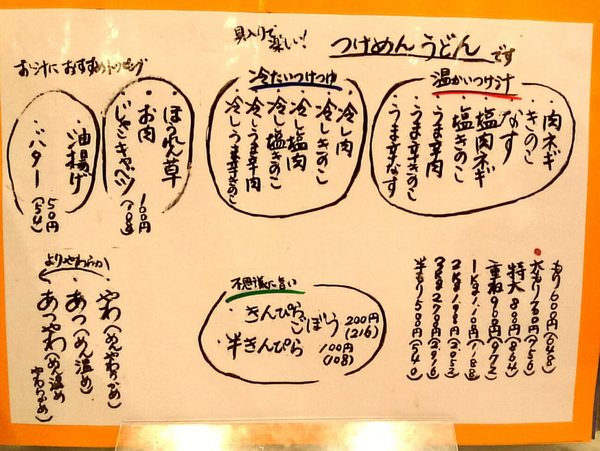 具入りで
楽しい!
つけめんうどんです
温かいつけ汁
・肉ネギ
・きのこ
・なす
・塩肉ネギ
・塩きのこ
・うま辛肉
・うま辛きのこ
・うま辛なす
冷たいつけつゆ
・冷し肉
・冷しきのこ
・冷し塩肉
・冷し塩きのこ
・冷しうま辛肉
・冷しうま辛きのこ
お汁におすすめトッピング
・ほうれん草
・お肉
・じゃこキャベツ
100円
(108)
・油揚げ
・バター
50円
(54)
もり600円(648)
大もり700円(756)
特大800円(864)
重ね900円(972)
1kg1,100円(1188)
2kg1,900円(2052)
3kg2700円(2916)
半もり500円(540)
不思議に旨い
・きんぴらごぼう
200円
(216)
・半きんぴら
100円
(108)
よりやわらか
・やわ(めんやわらかめ)
・あつ(めん温め)
・あつやわ(めん温め
やわらかめ)